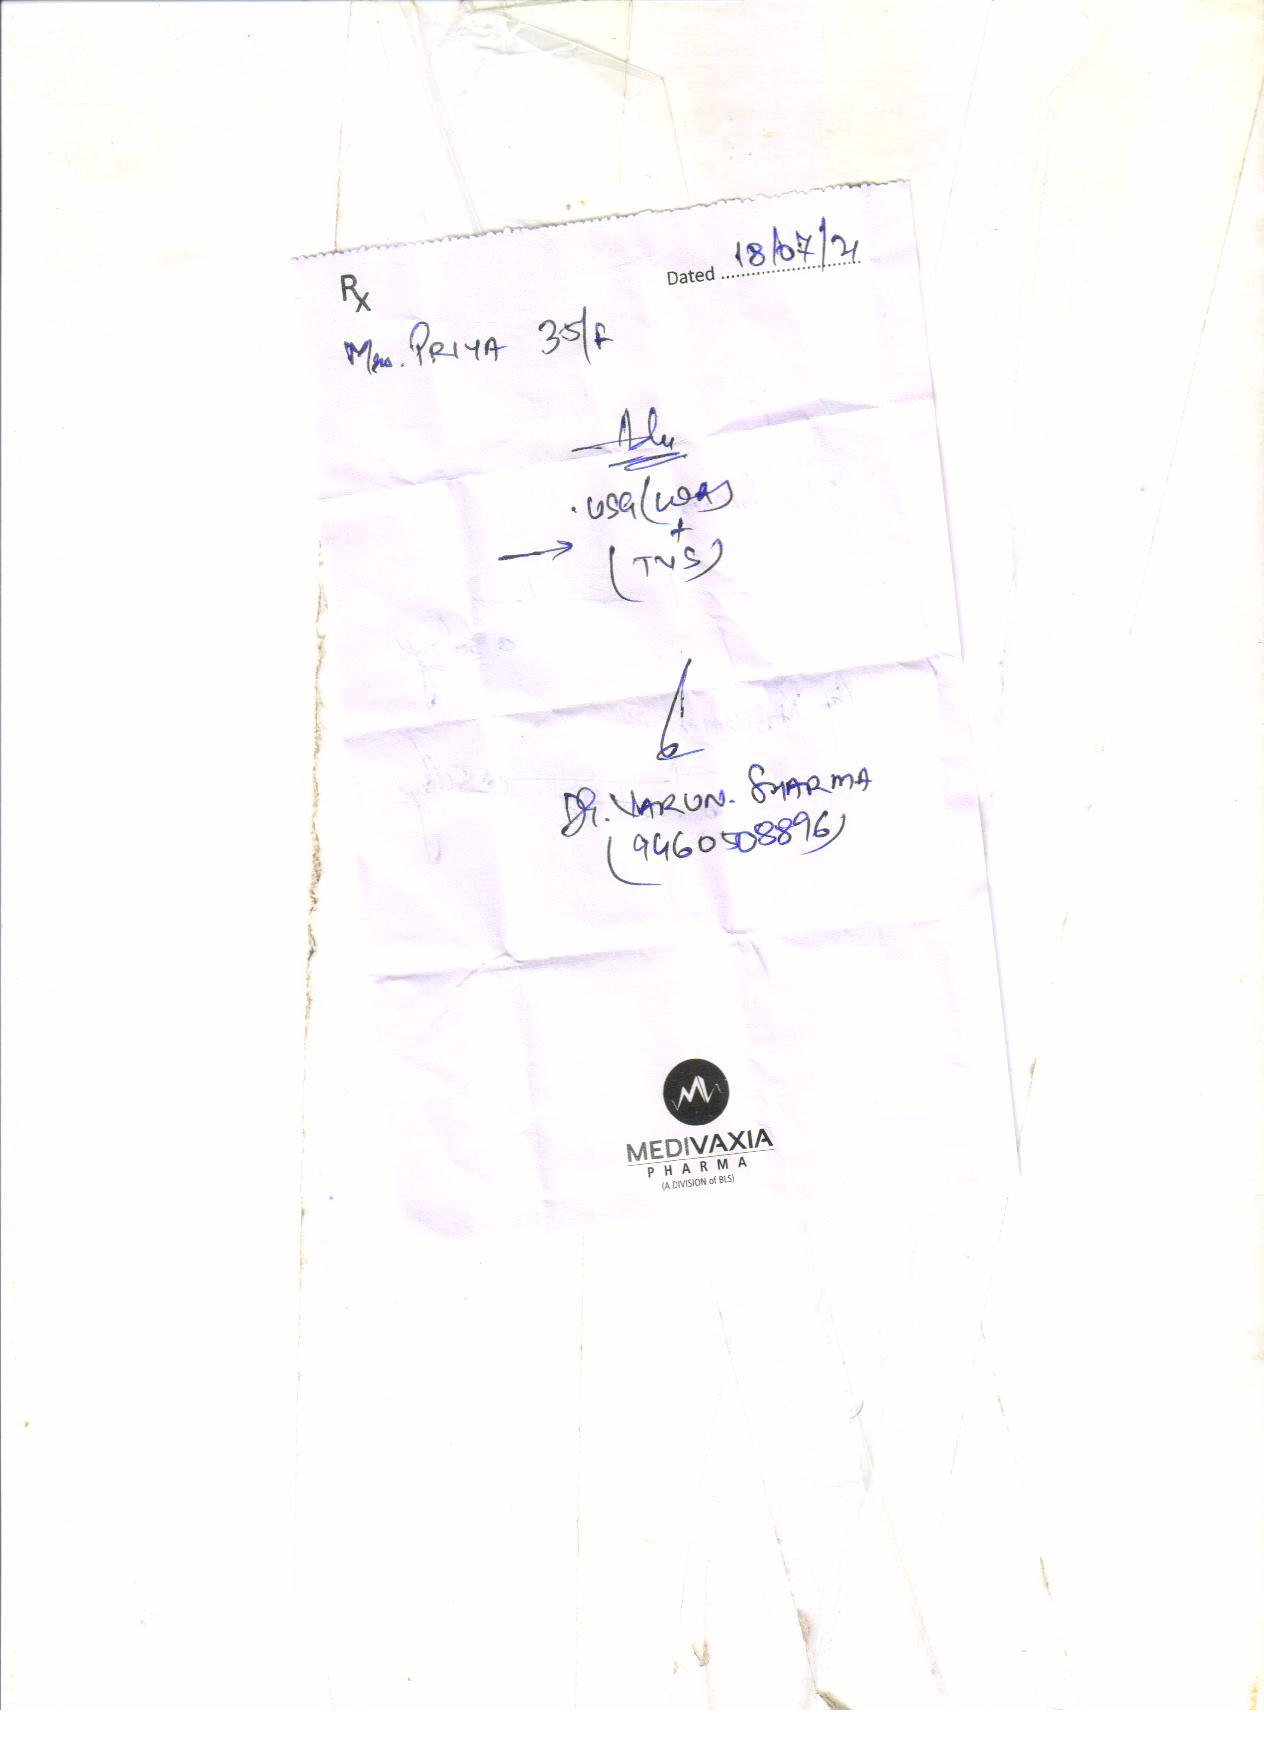 Rx
Dated 18/07/21
Mrs. PRIYA 35/F
Adv
. USG (WA)
+
(TVS)
Dr. VARUN. SHARMA
(9460508896)
MEDIVAXIA
PHARMA
(A DIVISION of BLS)